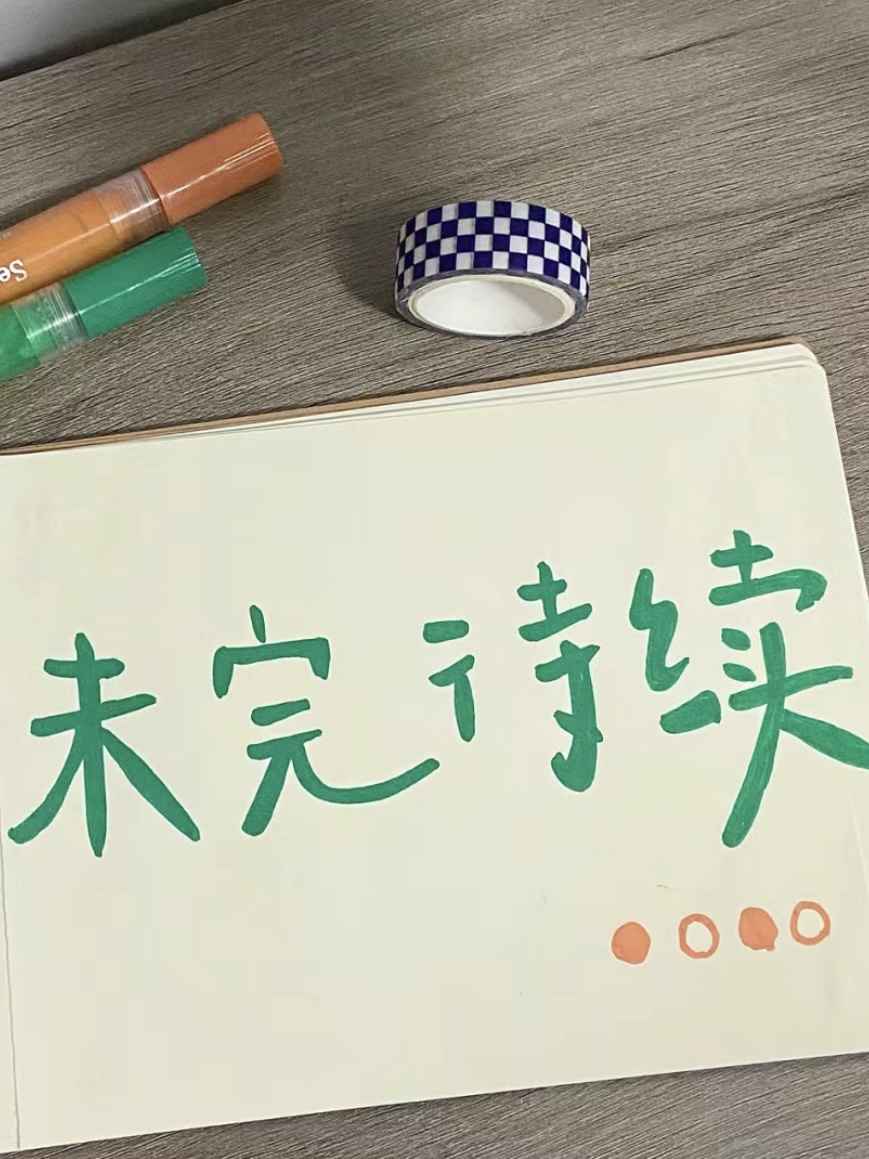 Se
未完待续